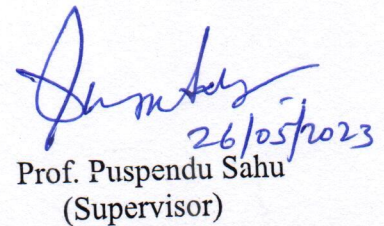 26/05/2023
Prof. Puspendu Sahu
(Supervisor)